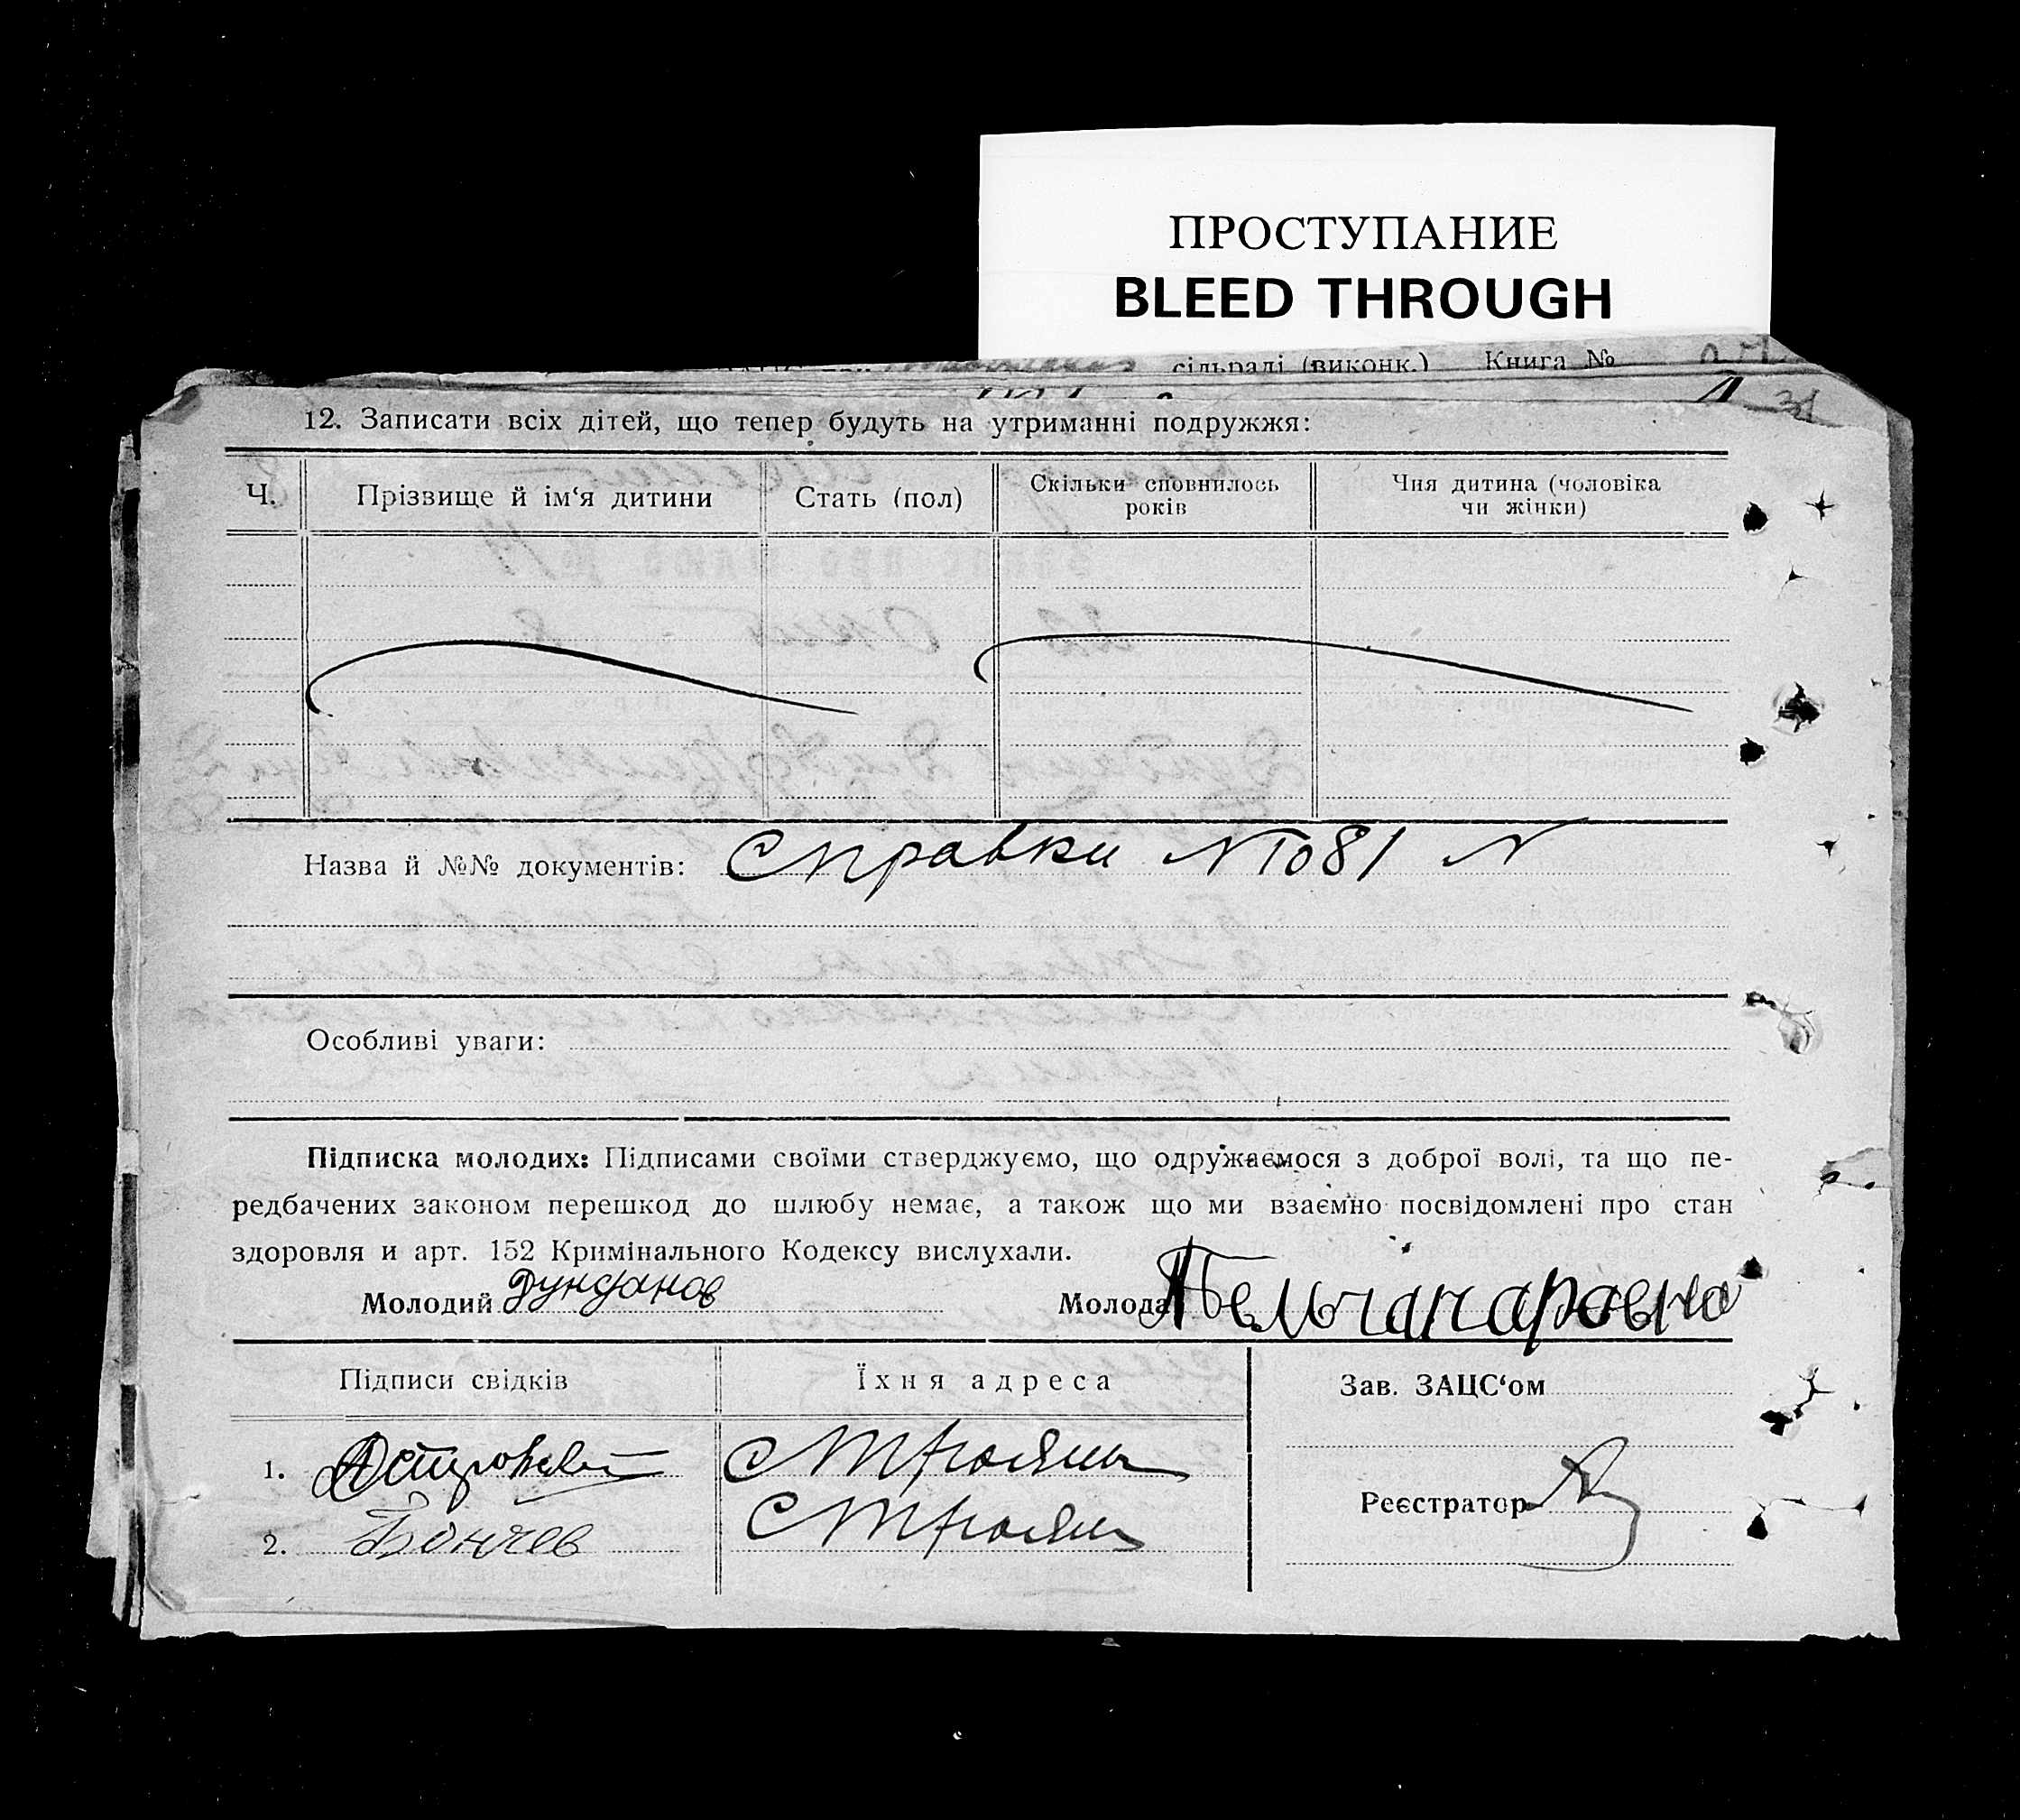 ПРОСТУПАНИЕ
BLEED THROUGH
сільраді (виконк.) Книга №
12. Записати всіх дітей, що тепер будуть на утриманні подружжя:
Ч. Прізвище й ім‘я дитини Стать (пол) Скільки сповнилось років Чия дитина (чоловіка чи жінки)
Назва й №№ документів: Справки № 1081 №
Особливі уваги:
Підписка молодих: Підписами своїми стверджуємо, що одружаємося з доброї волі, та що пе-
редбачених законом перешкод до шлюбу немає, а також що ми взаємно посвідомлені про стан
здоровля и арт. 152 Кримінального Кодексу вислухали.
Молодий Дунданов Молода
Підписи свідків Їхня адреса Зав. ЗАЦС‘ом
1.
Реєстратор
2. Бончев